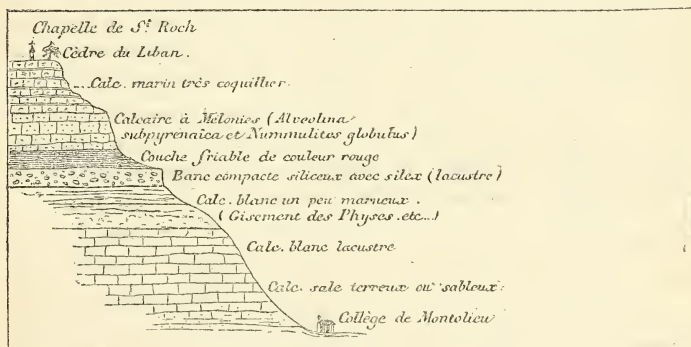 Chapelle de St. Roch
Cèdre du Liban.
Calc. marin très coquillier.
Calcaire à Mélonies (Alveolina
subpyrenaïca et Nummulites globulus)
Couche friable de couleur rouge
Banc compacte siliceux avec silex (lacustre)
Calc. blanc un peu marneux.
(Gisement des Physes. etc...)
Calc. blanc lacustre
Calc. sale terreux ou sableux.
Collège de Montolieu